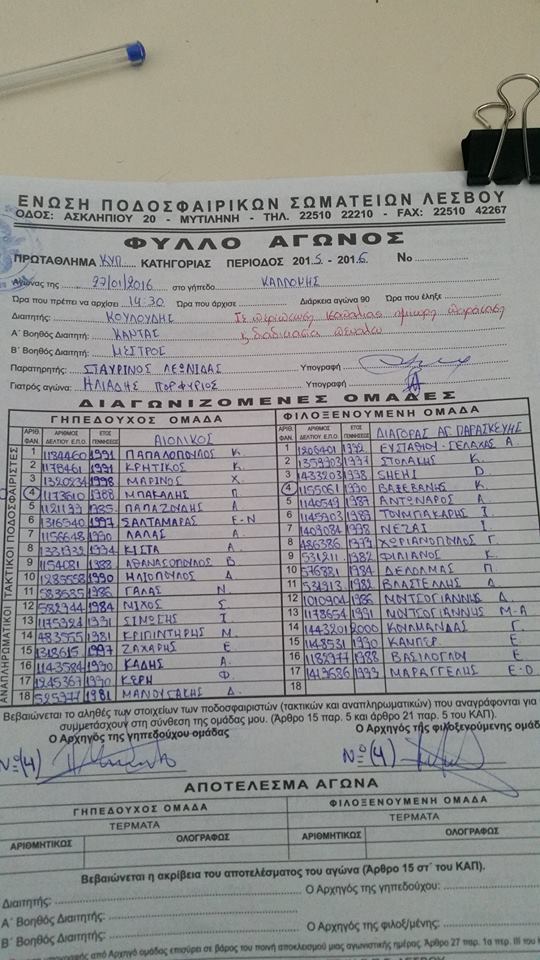 ΕΝΩΣΗ ΠΟΔΟΣΦΑΙΡΙΚΩΝ ΣΩΜΑΤΕΙΩΝ ΛΕΣΒΟΥ
ΟΔΟΣ: ΑΣΚΛΗΠΙΟΥ 20 - ΜΥΤΙΛΗΝΗ - ΤΗΛ. 22510 22210 - FAX: 22510 42267
ΦΥΛΛΟ ΑΓΩΝΟΣ
ΠΡΩΤΑΘΛΗΜΑ ΚΥΠ. ΚΑΤΗΓΟΡΙΑΣ ΠΕΡΙΟΔΟΣ 2015 - 2016 Νο
Αγώνας της 27/01/2016 στο γήπεδο ΚΑΛΛΟΝΗΣ
Ώρα που πρέπει να αρχίσει 14:30 Ώρα που άρχισε Διάρκεια αγώνα 90 Ώρα που έληξε
Διαιτητής: ΚΟΥΛΟΥΔΗΣ Σε περίπτωση ισοπαλίας ημίωρη παράταση
Α΄ Βοηθός Διαιτητή: ΚΑΝΤΑΣ & διαδικασία πέναλτυ
Β΄ Βοηθός Διαιτητή: ΜΕΣΤΡΟΣ
Παρατηρητής: ΣΤΑΥΡΙΝΟΣ ΛΕΩΝΙΔΑΣ Υπογραφή
Γιατρός αγώνα: ΗΛΙΑΔΗΣ ΠΟΡΦΥΡΙΟΣ Υπογραφή
ΔΙΑΓΩΝΙΖΟΜΕΝΕΣ ΟΜΑΔΕΣ
ΓΗΠΕΔΟΥΧΟΣ ΟΜΑΔΑ ΦΙΛΟΞΕΝΟΥΜΕΝΗ ΟΜΑΔΑ
ΑΡΙΘ. ΦΑΝ. ΑΡΙΘΜΟΣ ΔΕΛΤΙΟΥ Ε.Π.Ο. ΕΤΟΣ ΓΕΝΝΗΣΕΩΣ ΑΙΟΛΙΚΟΣ ΑΡΙΘ. ΦΑΝ. ΑΡΙΘΜΟΣ ΔΕΛΤΙΟΥ Ε.Π.Ο. ΕΤΟΣ ΓΕΝΝΗΣΕΩΣ ΔΙΑΓΟΡΑΣ ΑΓ. ΠΑΡΑΣΚΕΥΗΣ
ΑΝΑΠΛΗΡΩΜΑΤΙΚΟΙ ΤΑΚΤΙΚΟΙ ΠΟΔΟΣΦΑΙΡΙΣΤΕΣ
1 1184460 1991 ΠΑΠΑΛΟΠΟΥΛΟΣ Κ. 1 ΕΥΣΤΑΘΙΟΥ - ΓΕΛΑΧΑΣ Α.
2 1178461 1991 ΚΡΗΤΙΚΟΣ Κ. 2 ΣΤΟΛΑΚΗΣ Κ.
3 1320234 1998 ΜΑΡΙΝΟΣ Χ. 3 1433203 SHEHI D.
4 1173610 1988 ΜΠΑΚΑΛΗΣ Π. 4 1155061 1990 ΒΑΞΕΒΑΝΗΣ Κ.
5 1985 ΠΑΠΑΖΩΝΔΑΣ Α. 5 ΑΝΤΩΝΑΡΟΣ Α.
6 1316540 1997 ΣΑΝΤΑΜΑΡΑΣ Ε-Ν 6 1145903 1987 ΤΟΥΜΠΑΚΑΡΗΣ Ι.
7 1156648 1990 ΛΑΛΑΣ Α. 7 ΝΕΖΑΙ Ι.
8 ΚΙΣΤΑ Α. 8 486386 ΧΩΡΙΑΝΟΠΟΥΛΟΣ Γ.
9 1154081 1988 ΑΘΑΝΑΣΟΠΟΥΛΟΣ Β. 9 531211 1982 ΦΙΛΙΑΝΟΣ Κ.
10 1285558 1990 ΗΛΙΟΠΟΥΛΟΣ Δ. 10 576881 1984 ΔΕΛΟΛΜΑΣ Π.
11 583585 1985 ΓΑΛΑΣ Ν. 11 1982 ΒΛΑΣΤΕΛΛΗΣ Δ.
12 582744 1984 ΝΙΛΟΣ Σ. 12 1010904 1986 ΝΟΤΣΟΓΙΑΝΝΗΣ Δ.
13 1175924 1991 ΣΙΜΩΣΗΣ Ι. 13 1178654 1991 ΝΟΤΣΟΓΙΑΝΝΗΣ Μ-Α
14 483555 1981 ΚΡΙΠΙΝΤΗΡΗΣ Μ. 14 1443201 2000 ΚΟΥΛΜΑΝΔΑΣ Γ.
15 1318615 1997 ΖΑΧΑΡΗΣ Ε. 15 1148531 1990 ΚΑΜΠΕΡ Ε.
16 1143584 1990 ΚΑΔΗΣ Α. 16 1182977 1988 ΒΑΣΙΛΟΓΛΟΥ Ε.
17 1245367 1990 ΚΕΡΗ Φ. 17 1419686 1993 ΜΑΡΑΓΓΕΛΗΣ Ε-Θ
18 525377 1981 ΜΑΝΟΥΣΑΚΗΣ Δ. 18
Βεβαιώνεται το αληθές των στοιχείων των ποδοσφαιριστών (τακτικών και αναπληρωματικών) που αναγράφονται για
συμμετάσχουν στη σύνθεση της ομάδας μου. (Άρθρο 15 παρ. 5 και άρθρο 21 παρ. 5 του ΚΑΠ).
Ο Αρχηγός της γηπεδούχου ομάδας Ο Αρχηγός τής φιλοξενούμενης ομάδας
Νο (4) Νο (4)
ΑΠΟΤΕΛΕΣΜΑ ΑΓΩΝΑ
ΓΗΠΕΔΟΥΧΟΣ ΟΜΑΔΑ ΦΙΛΟΞΕΝΟΥΜΕΝΗ ΟΜΑΔΑ
ΤΕΡΜΑΤΑ ΤΕΡΜΑΤΑ
ΑΡΙΘΜΗΤΙΚΩΣ ΟΛΟΓΡΑΦΩΣ ΑΡΙΘΜΗΤΙΚΩΣ ΟΛΟΓΡΑΦΩΣ
Βεβαιώνεται η ακρίβεια του αποτελέσματος του αγώνα (Άρθρο 15 στ΄ του ΚΑΠ).
Διαιτητής: Ο Αρχηγός της γηπεδούχου:
Α΄ Βοηθός Διαιτητή:
Β΄ Βοηθός Διαιτητή: Ο Αρχηγός της φιλοξ/μένης:
υπογραφής από Αρχηγό ομάδας επισύρει σε βάρος του ποινή αποκλεισμού μιας αγωνιστικής ημέρας. Άρθρο 27 παρ. 1α περ. ΙΙΙ του